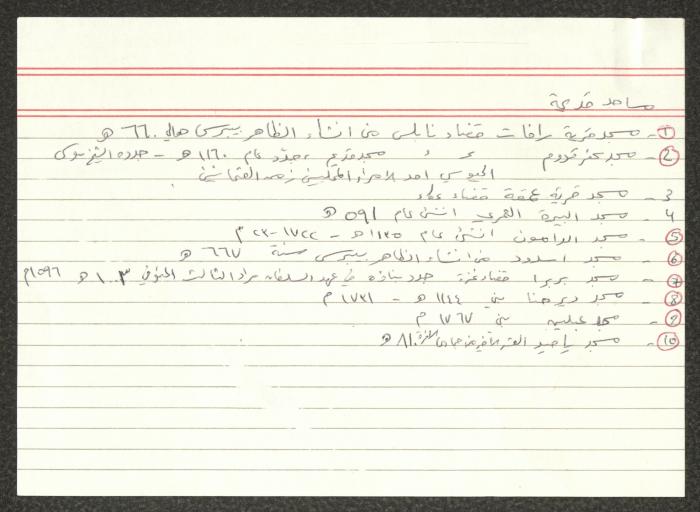 مساجد قديمة
1- مسجد قرية رافات قضاء نابلس من انشاء الظاهر بيبرس حوالي ٦٦٠ هـ
2- مسجد كفر قدوم " " مسجد قديم، جدد عام ١١٦٠ هـ - جدده الشيخ موسى
الجيوسي احد الأمراء المحليين زمن العثمانيين
٣- مسجد قرية عمقة قضاء عكا
٤- مسجد البيرة العمري انشئ عام ٥٩١ هـ
5- مسجد الدامون انشئ عام ١١٣٥ هـ - ١٧٢٢-٢٣ م
6- مسجد اسدود من انشاء الظاهر بيبرس سنة ٦٦٧ هـ
7- مسجد بربرا قضاء غزة جدد بناؤه في عهد السلطان مراد الثالث المتوفي ١٠٠٣ هـ ١٥٩٦م
8- مسجد دير حنا بني ١١٤٤ هـ - ١٧٣١ م
9- مسجد عبلين بني ١٧٦٧ م
10- مسجد ياصيد القرن ٨١٠ هـ